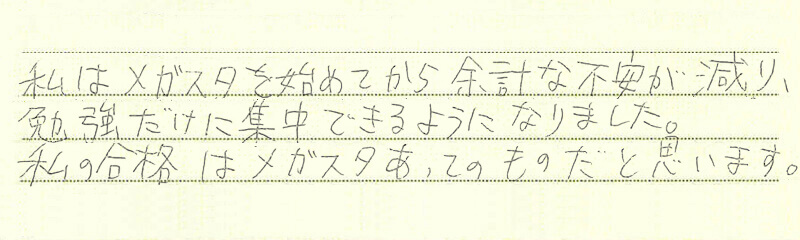 私はメガスタを始めてから余計な不安が減り、
勉強だけに集中できるようになりました。
私の合格はメガスタあってのものだと思います。